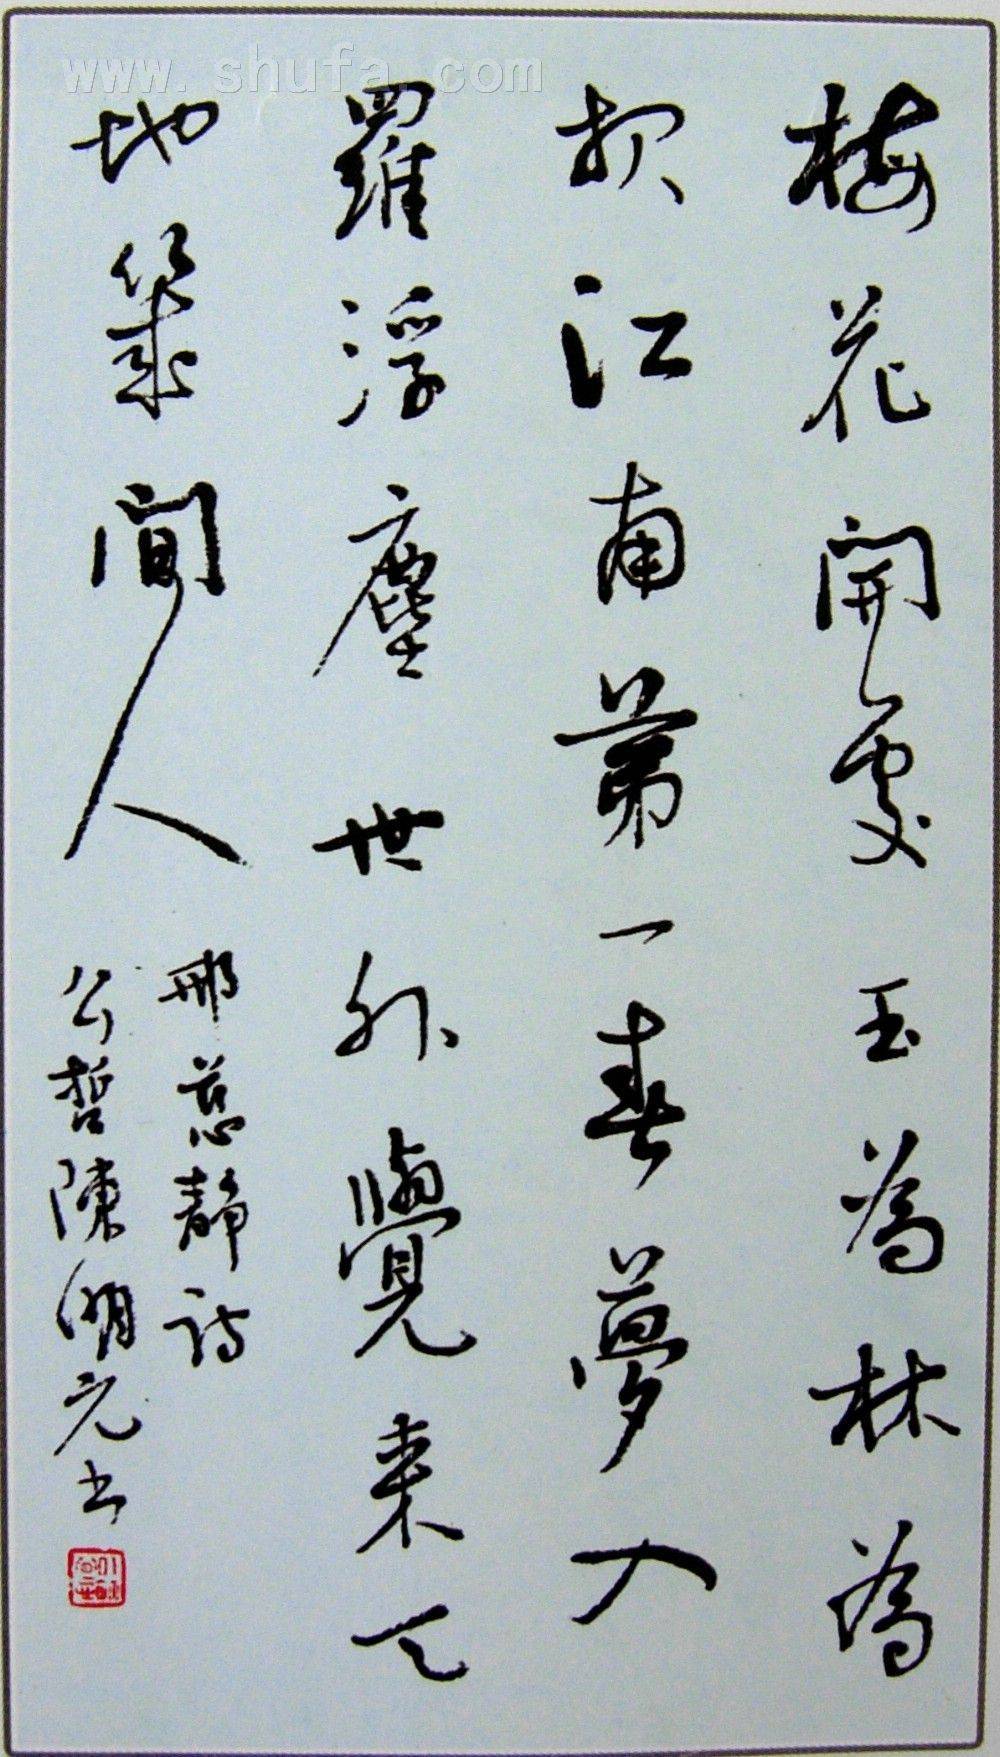 www.shufa.com
梅花開處玉為林為
报江南第一春夢入
羅浮塵世外覺来天
地幾間人
邢慈靜詩
公哲陳元书